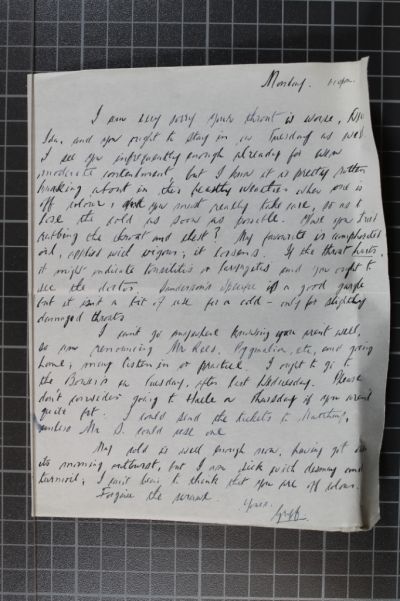 Monday.
I am very sorry your throat is worse,
Ida, and you ought to stay in on Tuesday as well
I see you infrequently enough already for even
moderate contentment, but I know it is pretty rotten
about in this beastly weather when one is
off colour, and you must really take care, so as to
lose the cold as soon as possible. Have you tried
rubbing the throat and chest? My favourite is camphorated
oil, applied with vigour; it loosens. If the throat hurts,
it might indicate tonsilitis or laryngitis and you ought to
see the doctor. is a good gargle
but it isn't a bit of use for a cold - only for slightly
damaged throats.
I can't go anywhere knowing you aren't well,
so am renouncing Mr Reed, Pygmalion, etc, and going
home; may listen in or practice. I ought to go to
the on Tuesday, after last Wednesday. Please
don't consider going to Halle on Thursday if you aren't
quite fit. I could send the tickets to
unless Mr. S. could use one.
My cold is well enough now, having got over
its morning outburst, but I am sick with dismay and
turmoil; I can't bear to think that you are off colour.
Forgive the scrawl.
Yours.
Griff.